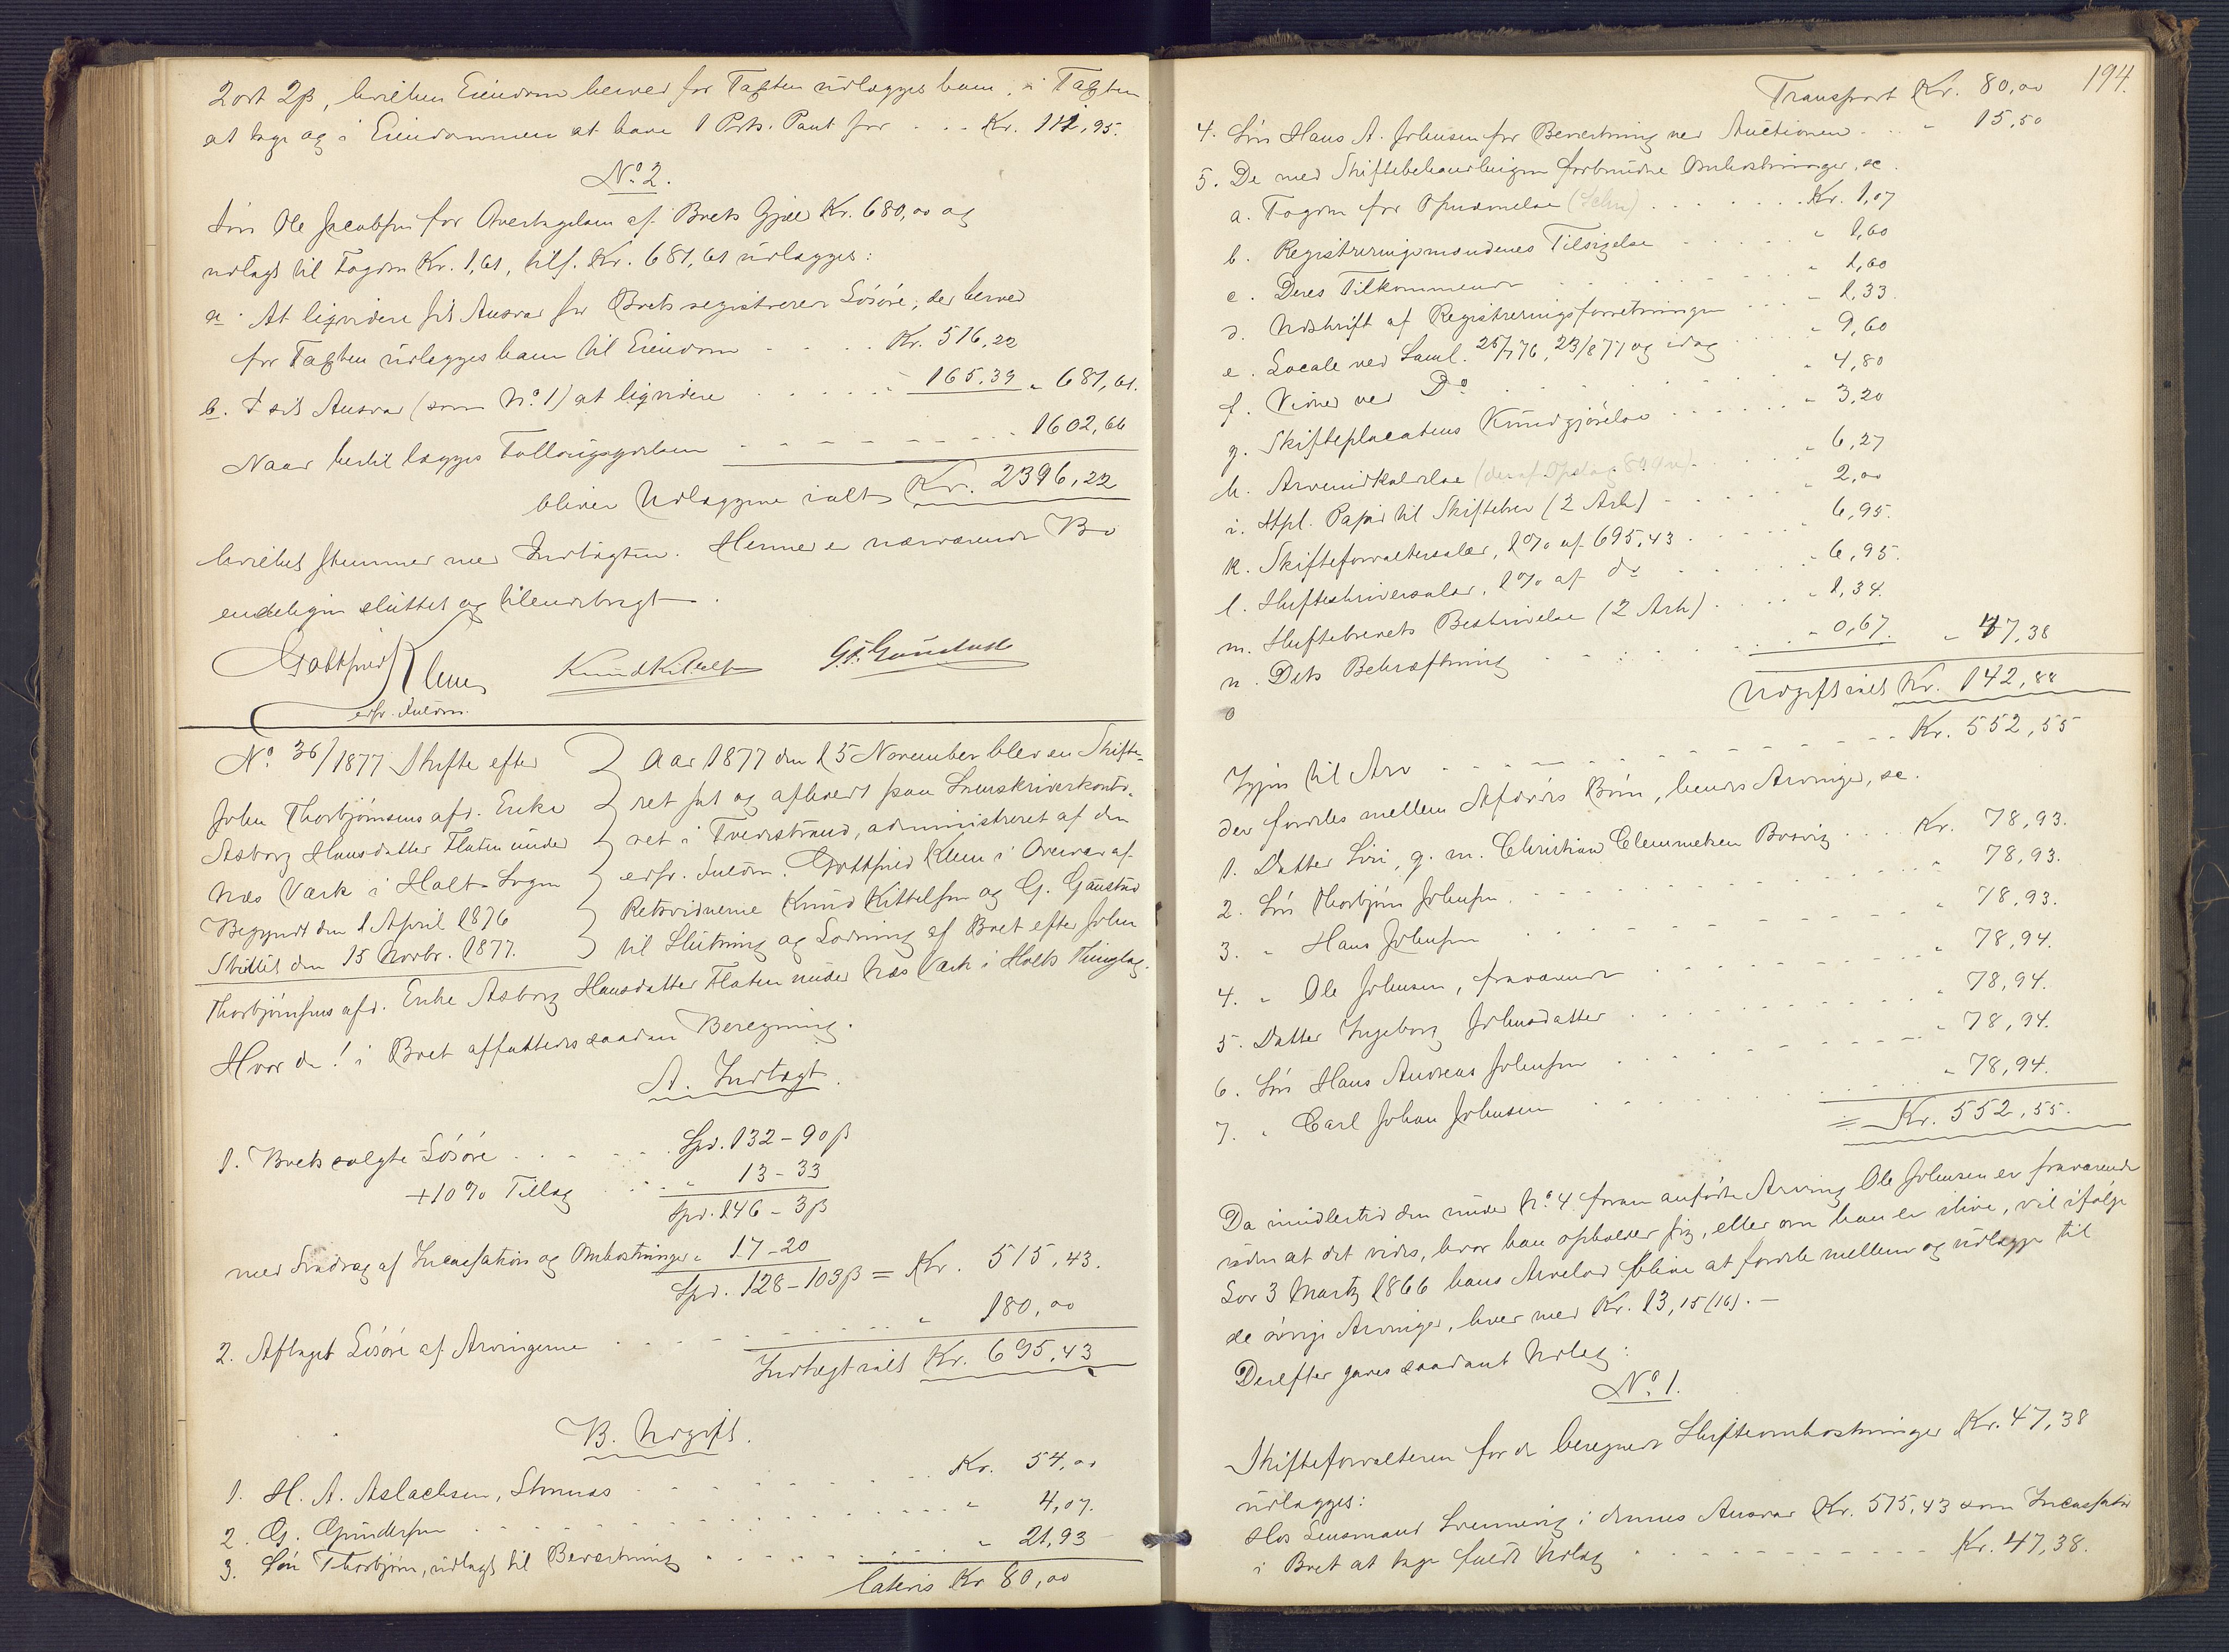 2 ort 2 β, hvilken Eiendom herved for Taxten udlægges ham, i Taxten
at tage og i Eiendommen at have 1 Prts. Pant for . . . Kr. 112,95.
No. 2.
Søn Ole Jacobsen for Overtagelsen af Boets Gjæld Kr. 680,00 og
udlagt til Fogden Kr. 1,61, tils. Kr. 681,61 udlægges:
a. At liqvidere sit Ansvar for Boets registrerede Løsøre, der herved
for Taxten udlægges ham til Eiendom . . . . Kr. 516,22
b. I sit Ansvar (som No. 1) at liqvidere . . . . . " 165,39 " 681,61.
Naar hertil lægges Fallitigodsen . . . . . . . 1602,66
bliver Udlæggene ialt Kr. 2396,22
hvilket stemmer med Indtægten. Hermed er nærværende Bo
endeligen sluttet og tilendebragt.
Gottfried Klem Knud Kittelsen G. Gaustad
edsv. Fuldm.
No. 36/1877 Skifte efter
John Thorbjørnsens afd. Enke
Asborg Hansdatter Flaten under
Næs Værk i Holt Sogn
Begyndt den 1 April 1876
Sluttet den 15 Novbr. 1877.
Aar 1877 den 15 November blev en Skifte-
ret sat og afholdt paa Sorenskriverkonto-
ret i Tvedestrand, administreret af den
edsv. Fuldm. Gottfried Klem i Overvær af
Retsvidnerne Knud Kittelsen og G. Gaustad
til Slutning og Lodning af Boet efter John
Thorbjørnsens afd. Enke Asborg Hansdatter Flaten under Næs Værk i Holts Thinglag.
Hvorda! i Boet affattedes saadan Beregning.
A. Indtægt.
1. Boets solgte Løsøre . . . . . Spd. 132 - 90 β
+ 10 % Tillæg . . . " 13 - 33
Spd. 146 - 3 β
med Fradrag af Incassation og Omkostninger " 17 - 20
Spd. 128 - 103 β = Kr. 515,43.
2. Aftaget Løsøre af Arvingerne . . . . . . . . " 180,00
Indtægt ialt Kr. 695,43
B. Udgift.
1. H. A. Aslachsen, . . . . . . Kr. 54,00
2. G. Gundersen . . . . . . . . . " 4,07.
3. Søn Thorbjørn, udlagt til Bevertning . . . . . . " 21,93
lateris Kr 80,00
194.
Transport Kr. 80,00
4. Søn Hans A. Johnsen for Bevertning ved Auctionen . . . " 15,50
5. De med Skiftebehandlingen forbundne Omkostninger, se.
a. Fogden for Opnævnelse . . . . . . . Kr. 1,07
b. Registreringsmændenes Tilsigelse . . . . . " 1,60
c. Deres Tilkommende . . . . . . . " 1,60
d. Udskrift af Registreringsforretningen . . . . " 1,33.
e. Locale ved Saml. 25/7 76, 23/8 77 og idag . . . . " 9,60
f. Vidner ved Do . . . . . . . " 4,80
g. Skifteplacatens Kundgjørelse . . . . . . " 3,20
h. Arveindkaldelse (deraf Opslag . . . . . " 6,27
i. Stpl. Papir til Skiftebrev (2 Ark) . . . . " 2,00
k. Skifteforvaltersalær, 1 % af 695,43 . . . . " 6,95.
l. Skifteskriversalær, 1 % af do . . . . . " 6,95.
m. Skiftebrevets Beskrivelse (2 Ark) . . . . " 1,34.
n. Dets Bekræftning . . . . . . " 0,67. " 47,38
o
Udgift ialt Kr. 142,88
Igjen til Arv . . . . . . . . . . . Kr. 552,55
der fordeles mellem Afdødes Børn, hendes Arvinger, se.
1. Datter Siri, g. m. Christian Clemmetsen Bosvig . . . Kr. 78,93.
2. Søn Thorbjørn Johnsen . . . . . . . . . " 78,93.
3. " Hans Johnsen . . . . . . . . " 78,93.
4. " Ole Johnsen, fraværende . . . . . . . " 78,94.
5. Datter Ingeborg Johnsdatter . . . . . . . " 78,94.
6. Søn Hans Andreas Johnsen . . . . . . . " 78,94.
7. " Carl Johan Johnsen . . . . . . . . " 78,94.
= Kr. 552,55.
Da imidlertid den under No. 4 foran anførte Arving Ole Johnsen er fraværende
uden at det vides, hvor han opholder sig, eller om han er ilive, vil ifølge
Lov 3 Marts 1866 hans Arvelod blive at fordele mellem og udlægge til
de øvrige Arvinger, hver med Kr. 13,15 (16). -
Derefter gaves saadant Udlæg:
No. 1.
Skifteforvalteren for de beregnede Skifteomkostninger Kr. 47,38
udlægges:
Hos Lensmand Svenning i dennes Ansvar Kr. 515,43 som Incassator
i Boet at tage fuldt Udlæg . . . . . . . . . Kr. 47,38.